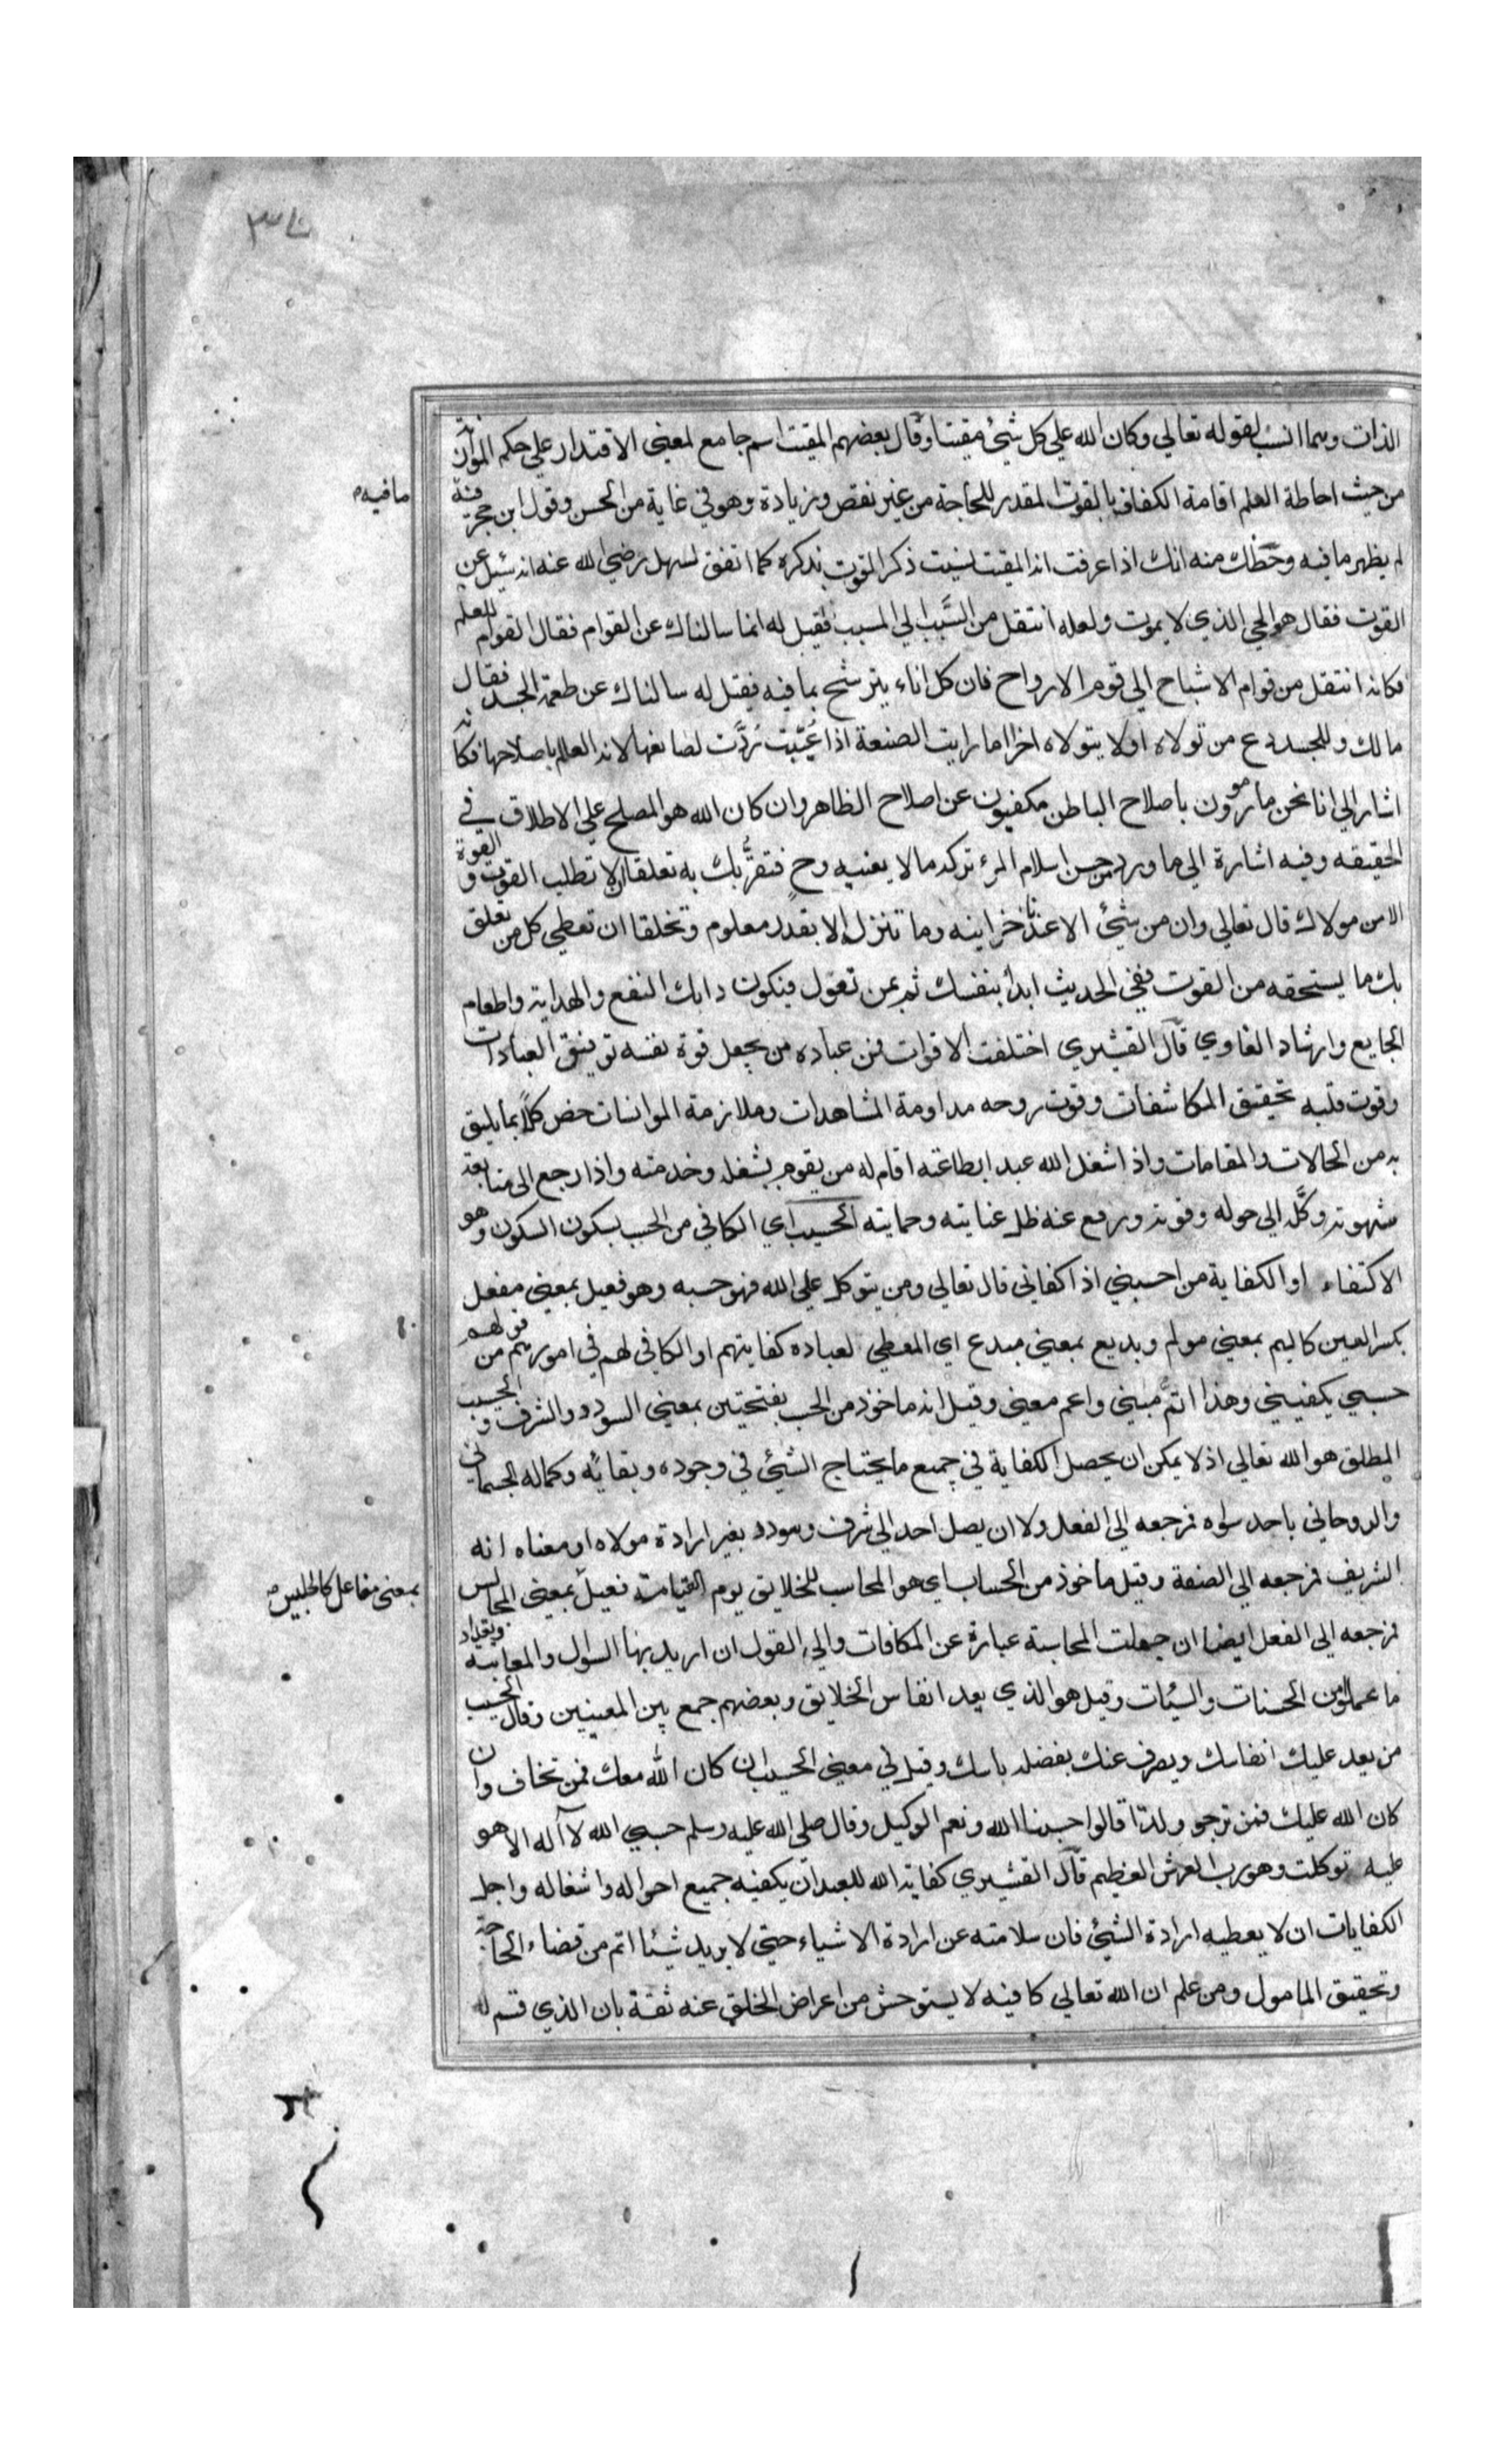 ٣٧
الذات وهما انسب لقوله تعالي وكان الله علي كل شئ مقيتا وقال بعضهم المقيت اسم جامع لمعني الاقتدار علي حكم الموازنة
من حيث احاطة العلم اقامة الكفاف بالقوت المقدر للحاجة من غير نقص وزيادة وهو في غاية من الحسن وقول ابن حجر فيه
ما فيه
لم يظهر ما فيه وحظك منه انك اذا عرفت انه المقيت نسيت ذكر القوت بذكره كما اتفق لسهل رضي الله عنه انه سئل عن
القوت فقال هو الحي الذي لا يموت ولعله انتقل من السَّبَب الي المسبب فقيل له انما سالناك عن القوام فقال القوام للعلم
فكانه انتقل من قوام الاشباح الي قوم الارواح فان كل اناء يترشح بما فيه فيقل له سالناك عن طعمة الجسد فقال
مالك وللجسد دع من تولاه اولا يتولاه اخرا اما رايت الصنعة اذا عُيّبت رُدَّت لصانعها لانه العالم باصلاحها فكانه
اشار الي انا نحن مامورون باصلاح الباطن مكفيون عن اصلاح الظاهر وان كان الله هو المصلح علي الاطلاق في
الحقيقه وفيه اشارة الي ما ورد من حسن اسلام المرء تركه ما لا يعنيه وح فتقرُّبك به تعلقا ان لا تطلب القوت والقوة
الا من مولاك قال تعالي وان من شئ الا عندنا خزاينه وما تنزل الا بقدر معلوم وتخلقا ان تعطي كل من تعلق
بك ما يستحقه من القوت ففي الحديث ابدا بنفسك ثم بمن تعول فيكون دابك النفع والهداية واطعام
الجايع وارشاد الغاوي قال القشيري اختلفت الاقوات فمن عباده من يجعل قوة نفسه توفيق العبادات
وقوت قلبه تحقيق المكاشفات وقوت روحه مداومة المشاهدات وملازمة الموانسات خص كلا بما يليق
به من الحالات والمقامات واذا شغل الله عبدا بطاعته اقام له من يقوم بشغله وخدمته واذا رجع الي متابعة
شهوته وكَّله الي حوله وقوته ورفع عنه ظل عنايته وحمايته الحسيب اي الكافي من الحسب بسكون السكون وهو
الاكتفاء او الكفاية من احسبني اذا كفاني قال تعالي ومن يتوكل علي الله فهو حسبه وهو فعيل بمعني مفعل
بكسر العين كاليم بمعني مولم وبديع بمعني مبدع اي المعطي لعباده كفايتهم او الكافي لهم في امورهم من قولهم
حسبي يكفيني وهذا اتمّ مبني واعم معني وقيل انه ماخوذ من الحسب بفتحتين بمعني السودد والشرف والحسيب
المطلق هو الله تعالي اذ لا يمكن ان يحصل الكفاية في جميع ما يحتاج الشئ في وجوده وبقائه وكماله الجسماني
والروحاني باحد سواه فرجعه الي الفعل ولا ان يصل احد الي شرف وسودد بغير ارادة مولاه او معناه انه
الشريف فرجعه الي الصفة وقيل ماخوذ من الحساب اي هو المحاسب للخلايق يوم القيامة فعيل بمعني المجالس
بمعني مفاعل كالجليس
فرجعه الي الفعل ايضا ان جعلت المحاسبة عبارة عن المكافات والي القول ان اريد بها السوال والمعاتبة وتعداد
ما عملوا من الحسنات والسئات وقيل هو الذي يعد انفاس الخلايق وبعضهم جمع بين المعنيين وقال الحسيب
من يعد عليك انفاسك ويصرف عنك بفضله باسك وقيل في معني الحسيب ان كان الله معك فمن تخاف وان
كان الله عليك فمن ترجو ولذا قالوا حسبنا الله ونعم الوكيل وقال صلي الله عليه وسلم حسبي الله لا اله الا هو
عليه توكلت وهو رب العرش العظيم قال القشيري كفاية الله للعبد ان يكفيه جميع احواله واشغاله واجل
الكفايات ان لا يعطيه ارادة الشئ فان سلامته عن ارادة الاشياء حتي لا يريد شيئا اتم من قضاء الحاجة
وتحقيق المامول ومن علم ان الله تعالي كافيه لا يستوحش من اعراض الخلق عنه ثقة بان الذي قسم له